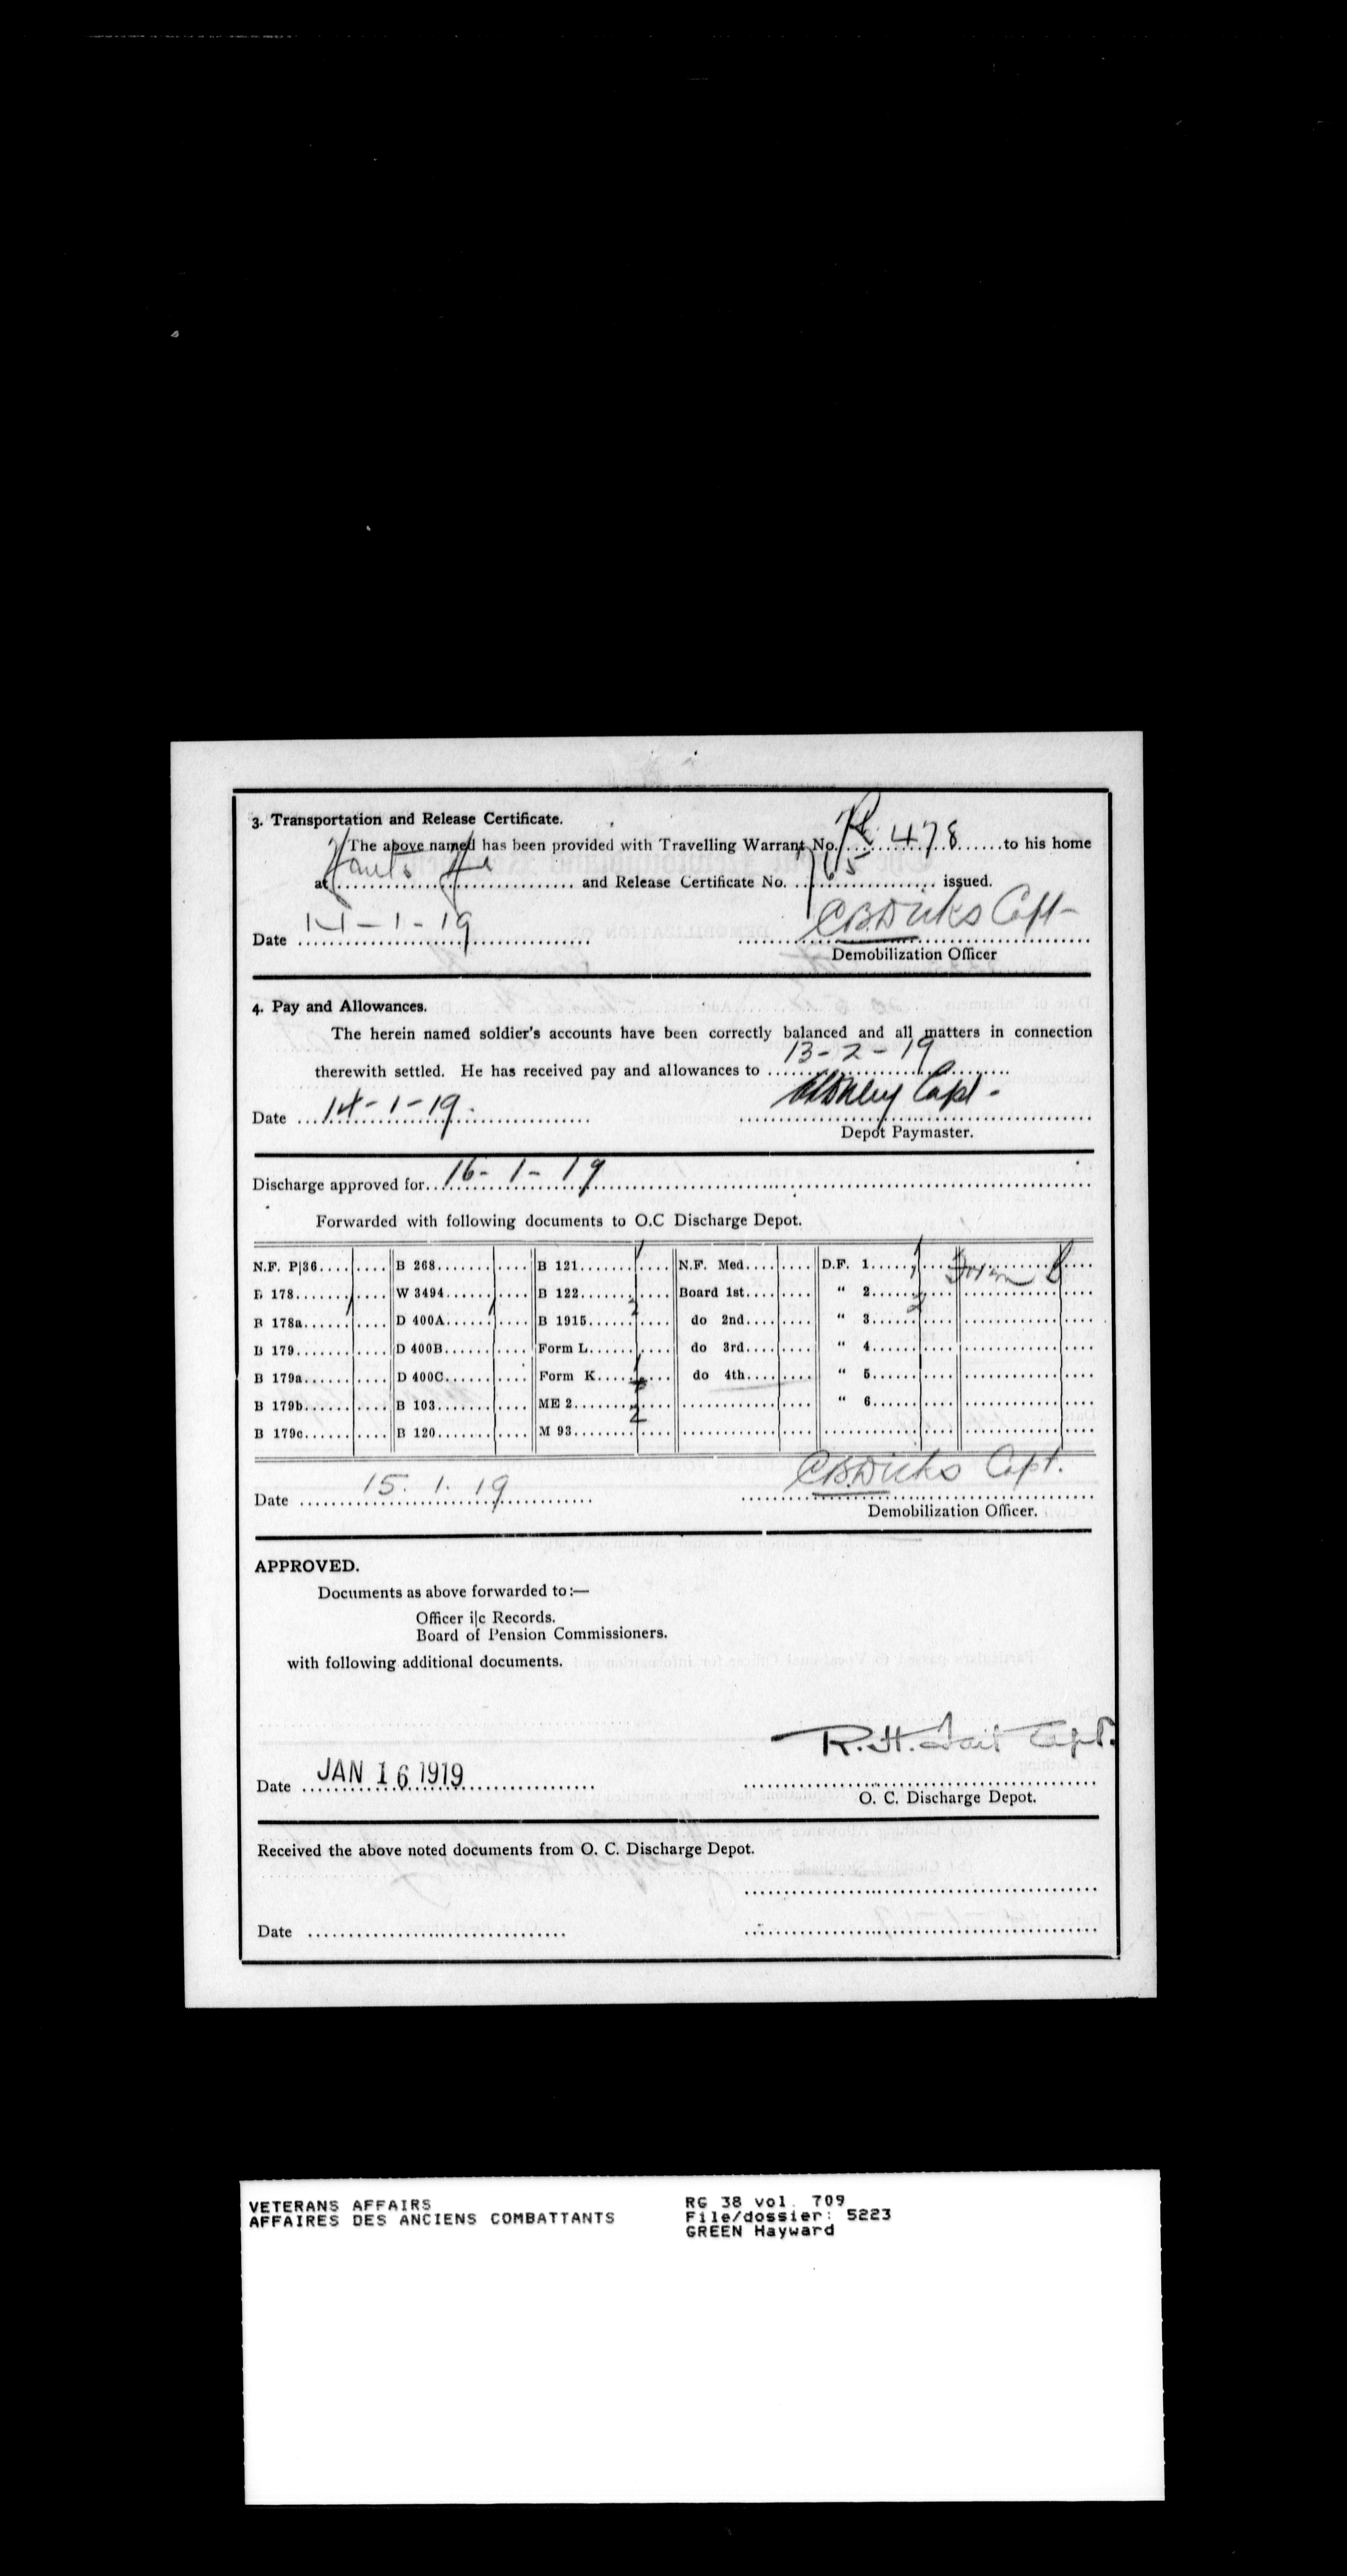 3. Transportation and Release Certificate.
The above named has been provided with Travelling Warrant No. R 478 to his home
at Hants Hr and Release Certificate No. 765 issued.
Date 14-1-19 C.B. Dicks Capt-
Demobilization Officer
4. Pay and Allowances.
The herein named soldier's accounts have been correctly balanced and all matters in connection
therewith settled. He has received pay and allowances to 13-2-19
Date 14-1-19. Capt-
Depot Paymaster.
Discharge approved for 16-1-19
Forwarded with following documents to O.C Discharge Depot.
N.F. P|36 B 268 B 121 1 N.F. Med. D.F. 1 1 Form B
B 178 W 3494 B 122 Board 1st " 2 1
B 178a 1 D 400A 1 B 1915 2 do 2nd " 3 2
B 179 D 400B Form L do 3rd " 4
B 179a D 400C Form K 1 do 4th " 5
B 179b B 103 ME 2 1 " 6
B 179c B 120 M 93 2
Date 15.1.19 C.B. Dicks Capt.
Demobilization Officer.
APPROVED.
Documents as above forwarded to:—
Officer i|c Records.
Board of Pension Commissioners.
with following additional documents.
R.H. Tait Capt.
Date JAN 16 1919
O. C. Discharge Depot.
Received the above noted documents from O. C. Discharge Depot.
Date
VETERANS AFFAIRS RG 38 vol. 709
AFFAIRES DES ANCIENS COMBATTANTS File/dossier: 5223
GREEN Hayward